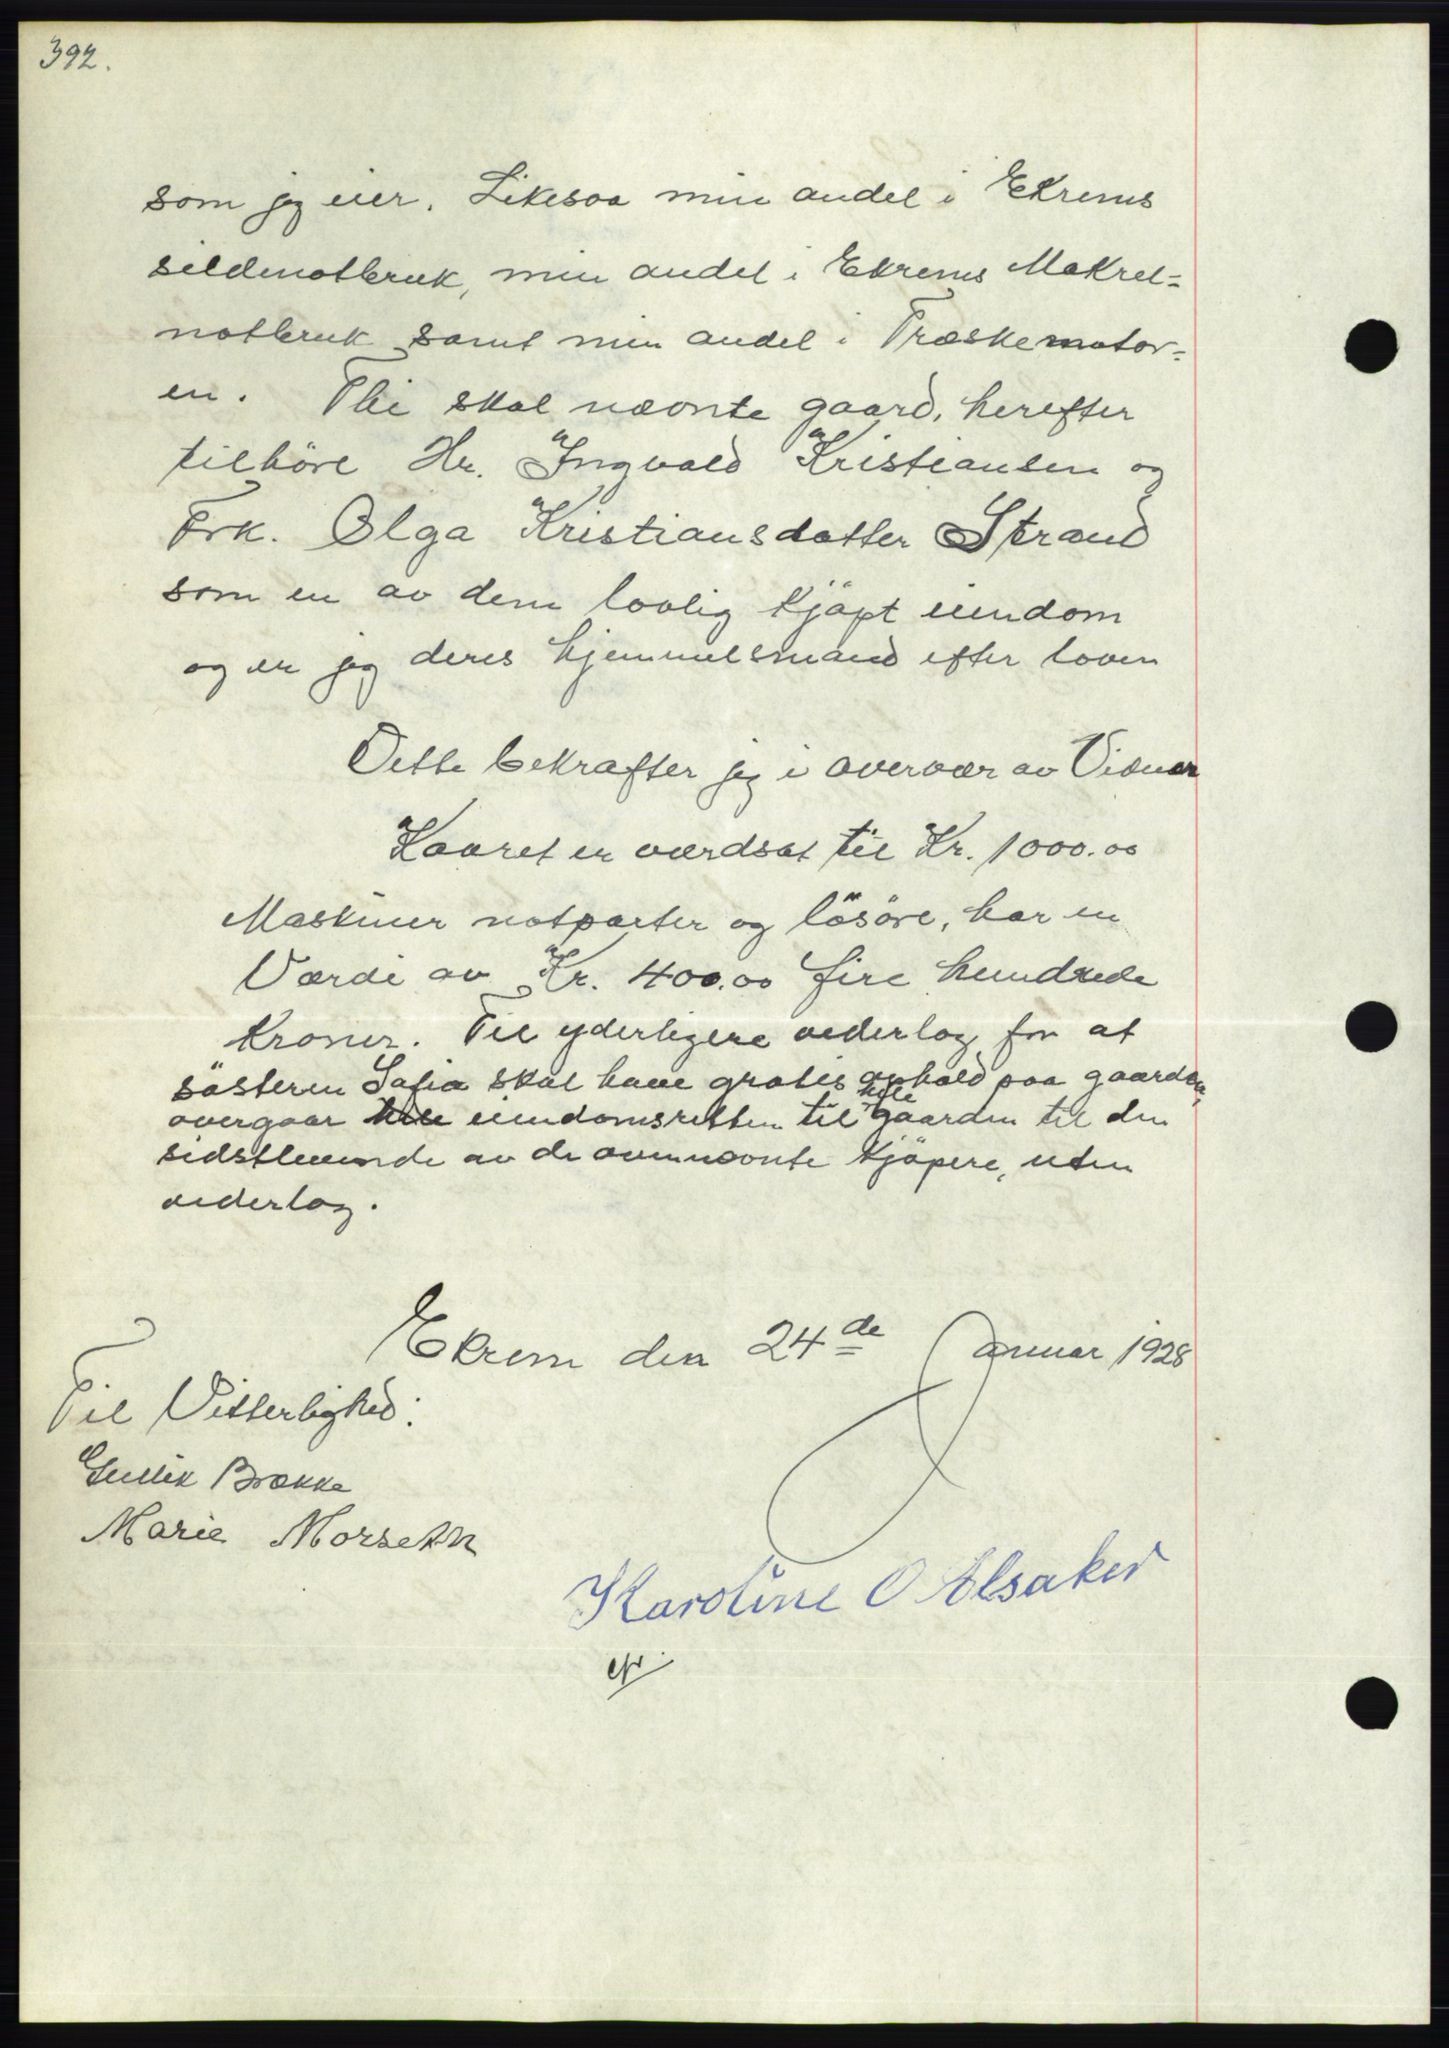 392.
som jeg eier. Likesaa min andel i Ekrems
sildenotbruk, min andel i Ekrems Makrel=
notbruk samt min andel i Træskemotor=
en. Thi skal nævnte gaard, herefter
tilhöre Hr. Ingvald Kristiansen og
Frk. Olga Kristiansdatter Strand
som en av dem lovlig kjöpt eiendom
og er jeg deres hjemmelsmand efter loven
Dette bekræfter jeg i overvær av Vidner
Kaaret er værdsat til Kr. 1000.00
Maskiner notparter og lösöre, har en
Værdi av Kr. 400.00 fire hundrede
Kroner. Til yderligere vederlag for at
sösteren Sofia skal have gratis ophold paa gaarden,
overgaar hele eiendomsretten til hele gaarden til den
sidstlevende av de ovennævnte kjöpere, uten
vederlag.
Ekrem den 24de Januar 1928
Til Vitterlighed:
Gullik Brække
Marie Morseth
Karoline O Alsaker